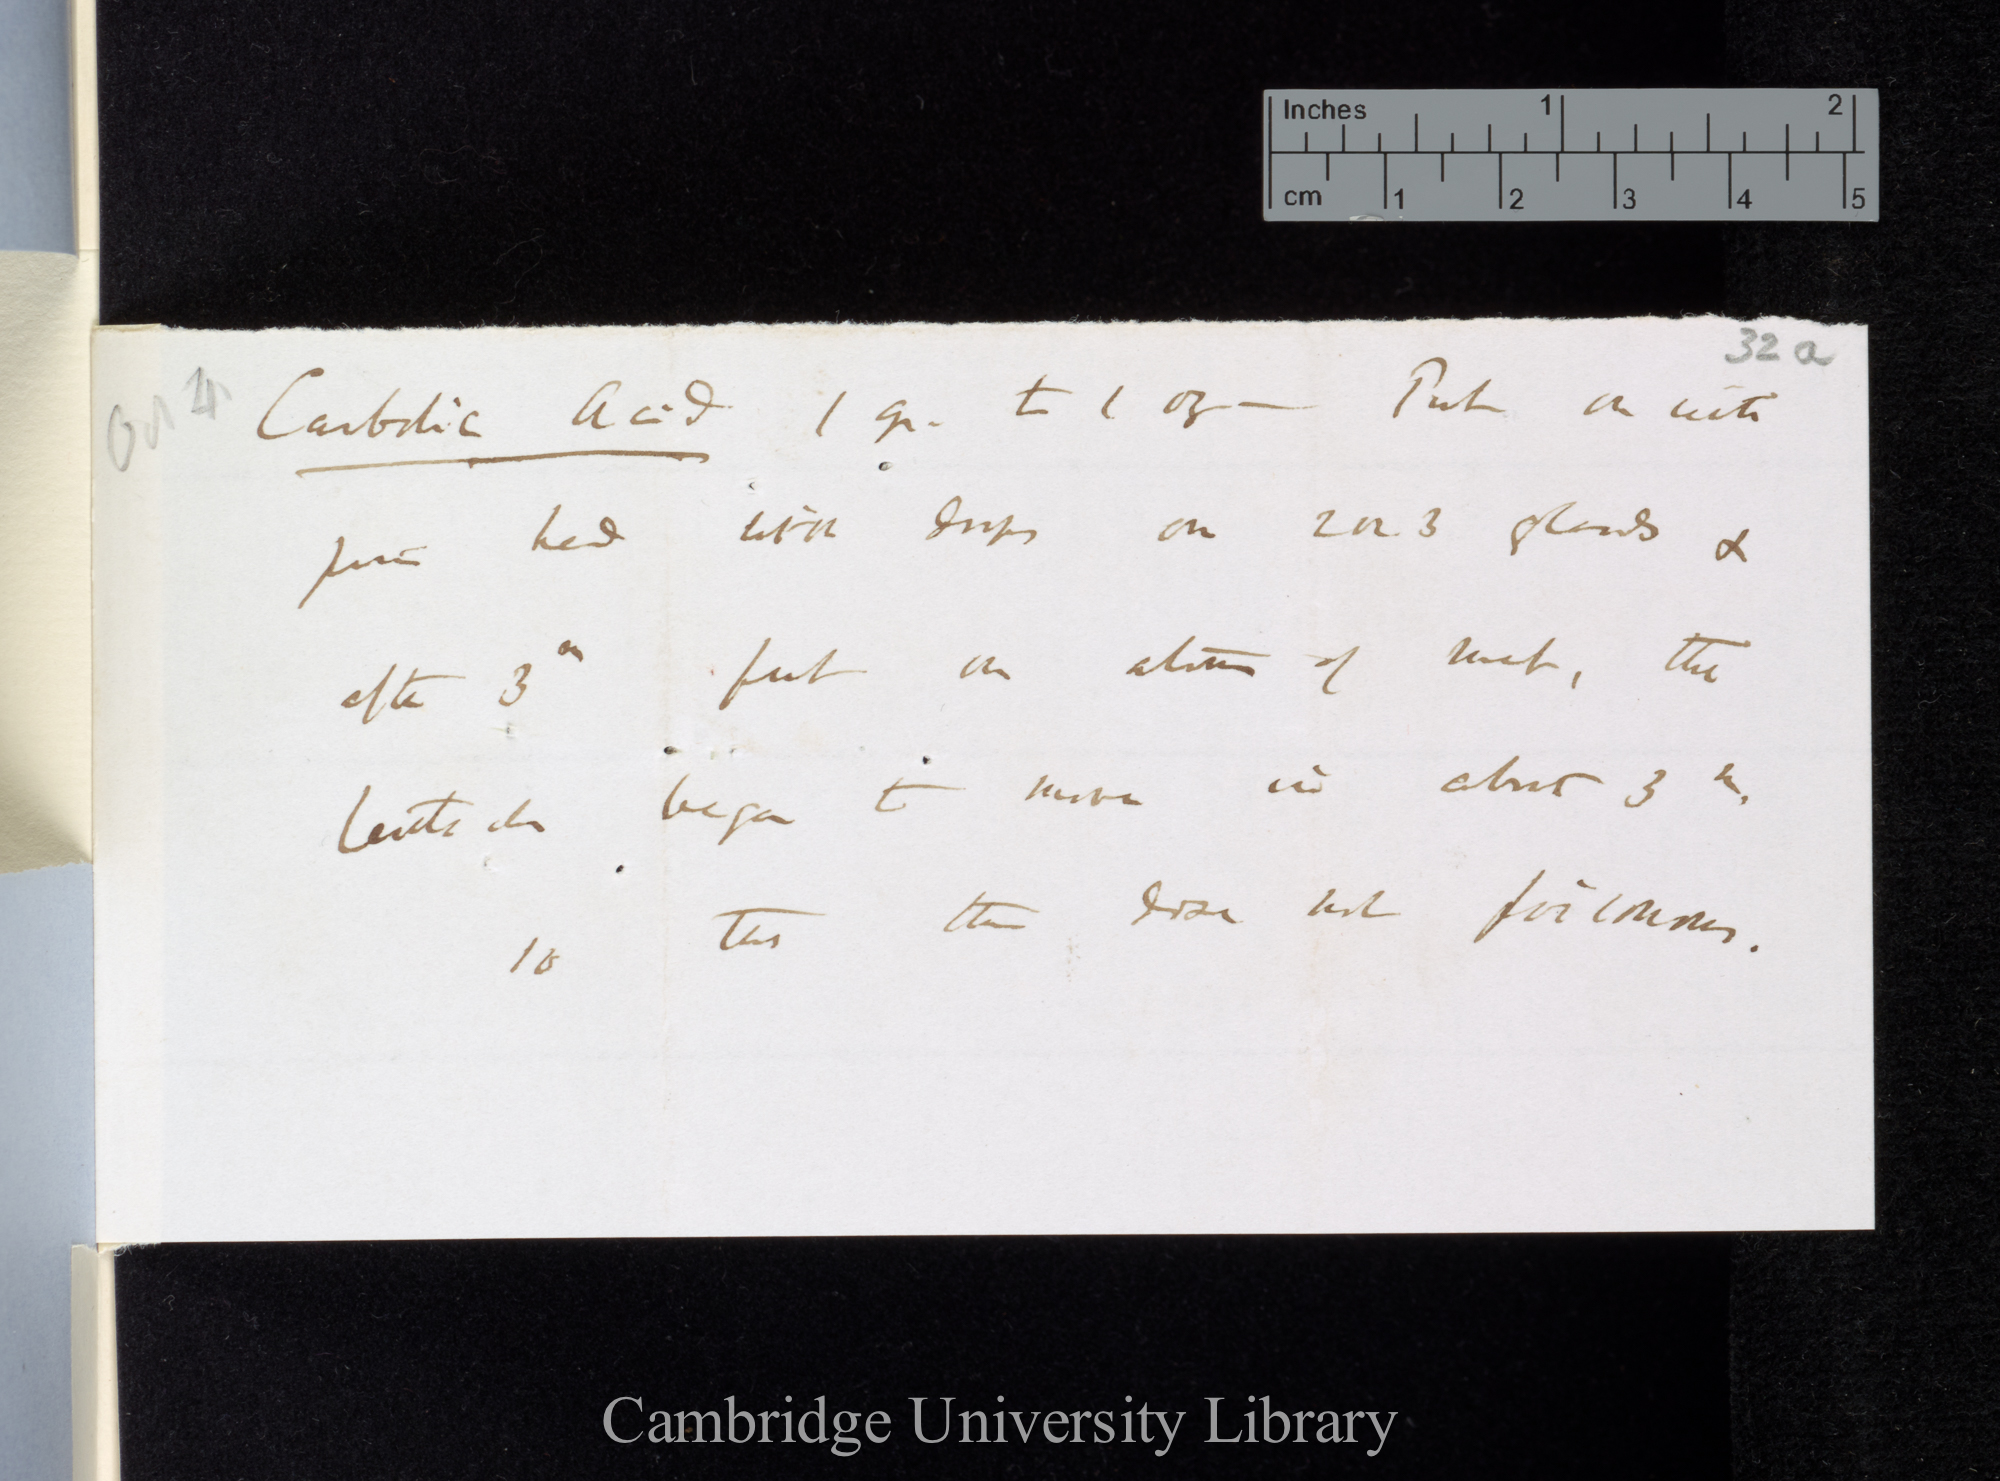 Inches 1 2
cm 1 2 3 4 5
32 a
Oct 4
Carbolic Acid 1 gr. to 1 oz — Put on with
pin head with drops on 2 or 3 glands &
after 3 m put on atoms of meat, the
tentacles began to move in about 3 m.
so this then dose not poisonous.
Cambridge University Library